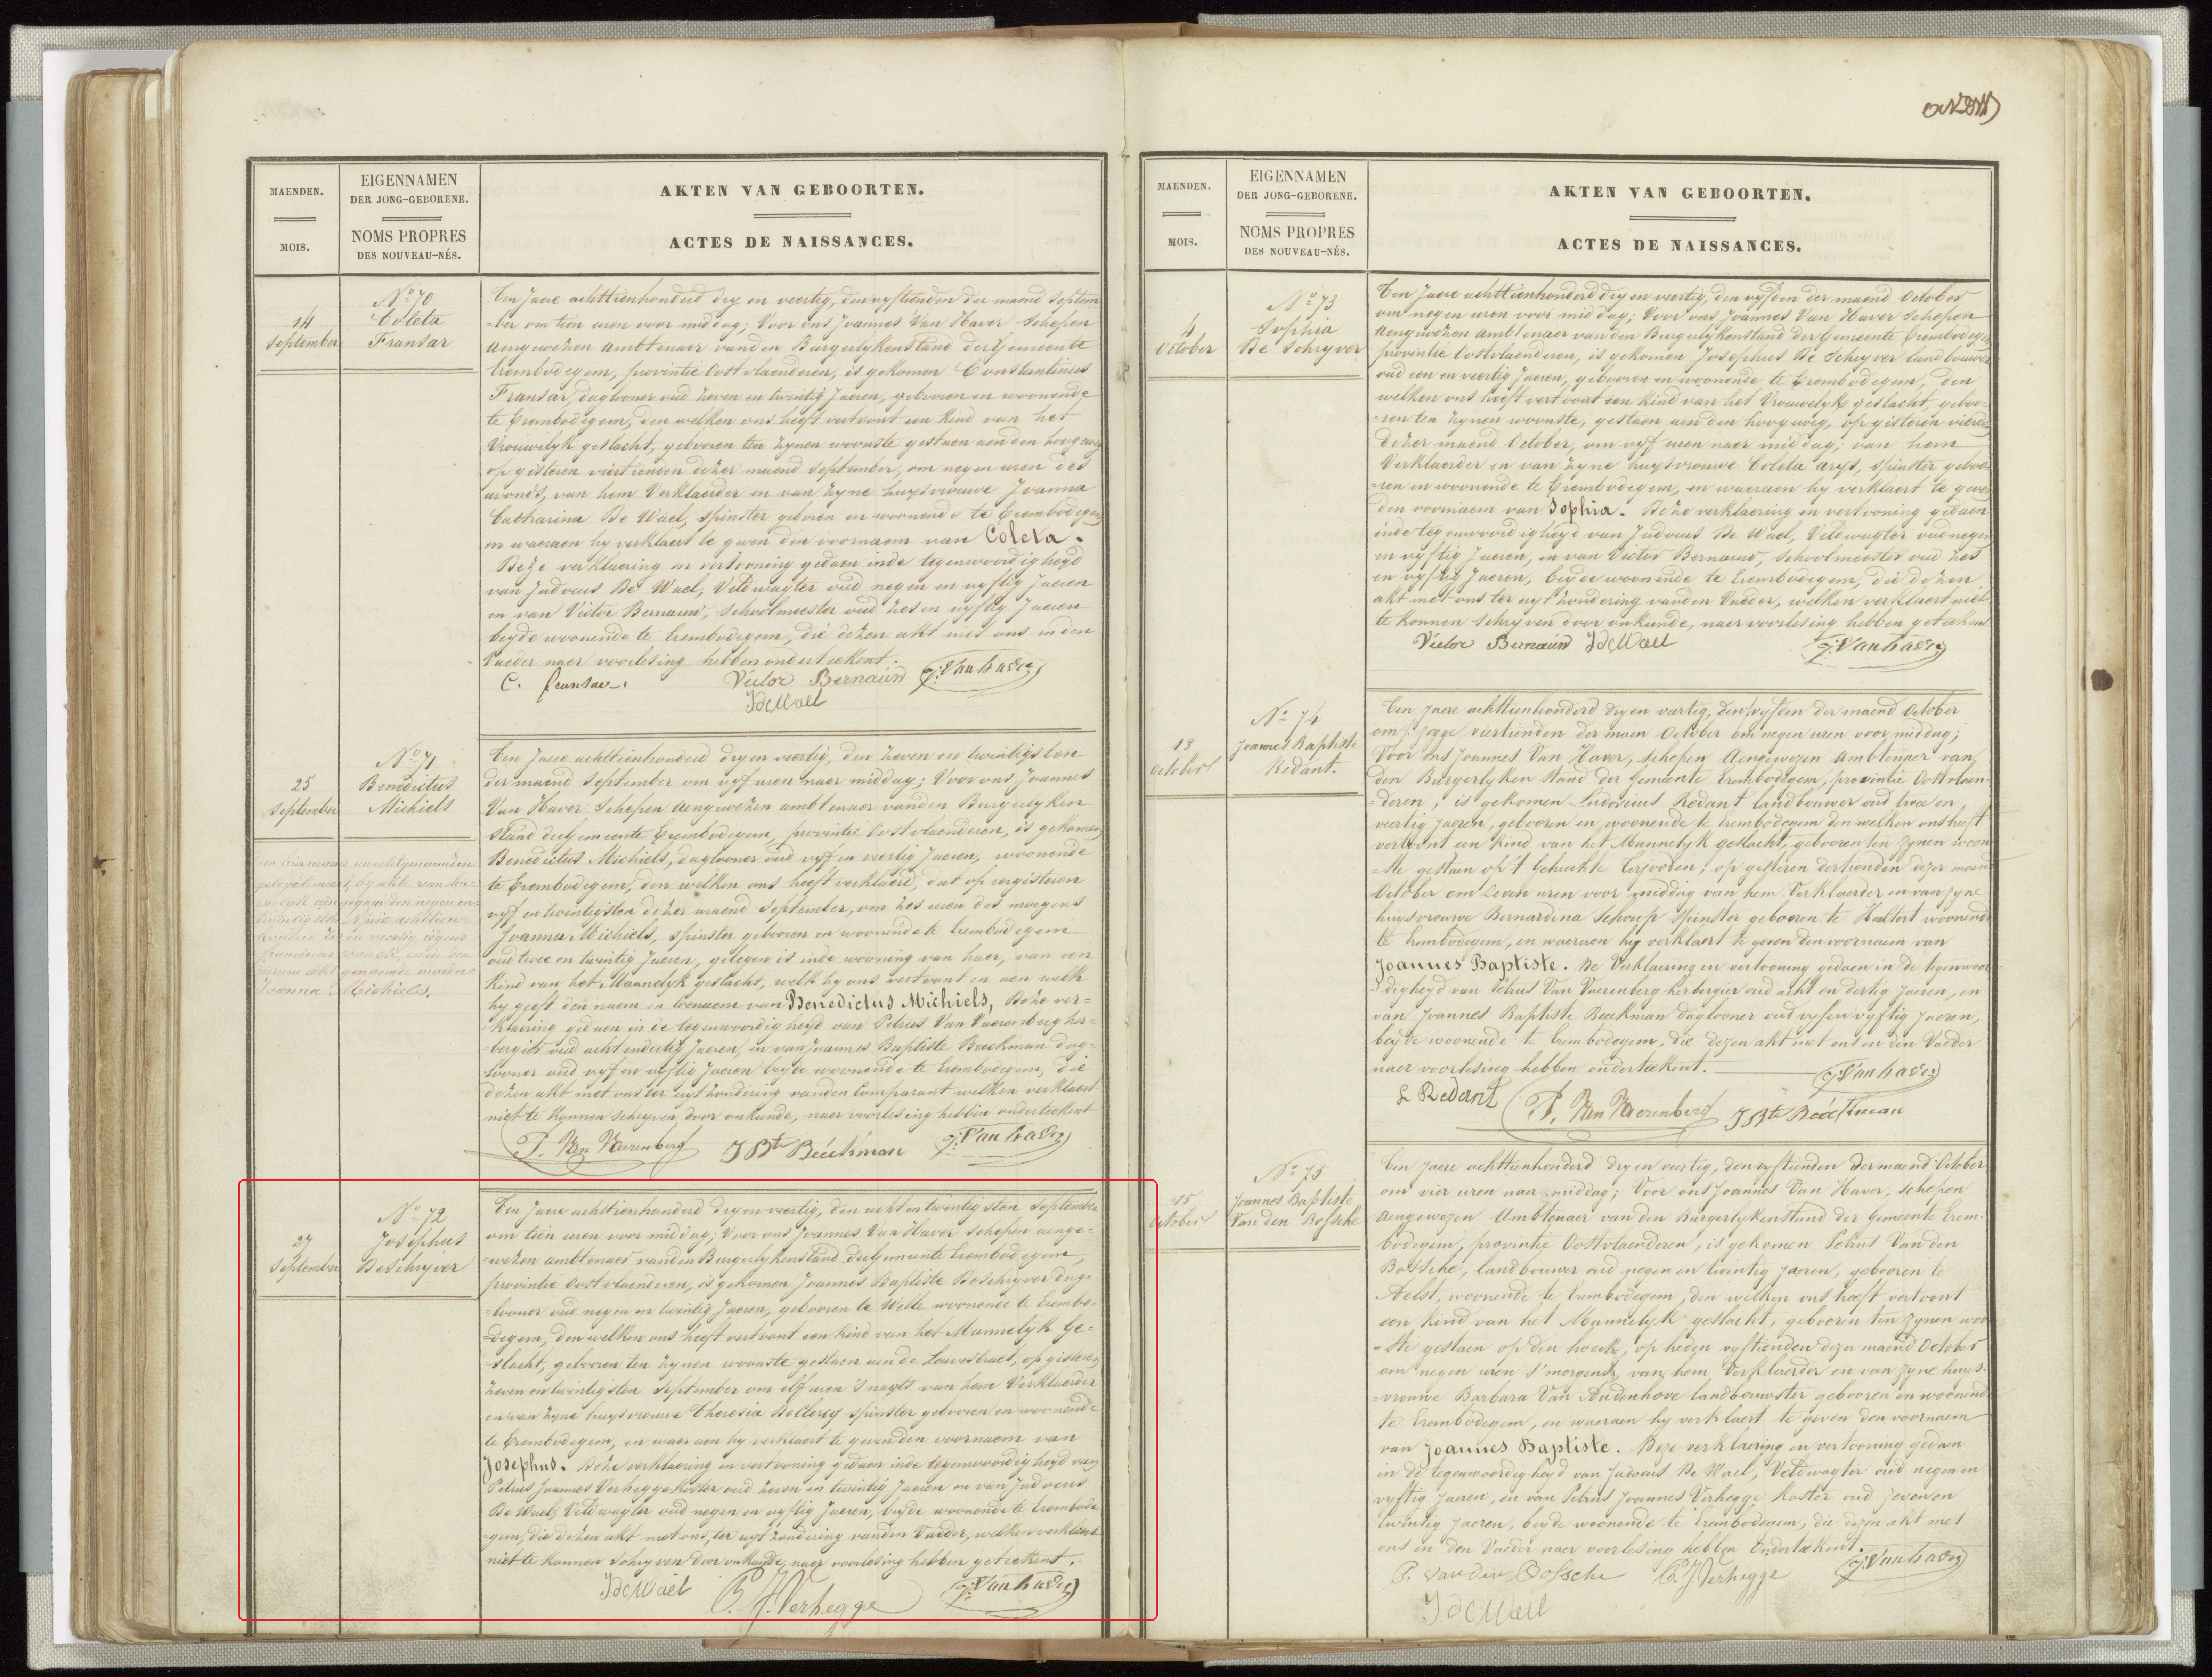 MAENDEN.
MOIS.
EIGENNAMEN
DER JONG-GEBORENE.
NOMS PROPRES
DES NOUVEAU-NÉS.
AKTEN VAN GEBOORTEN.
ACTES DE NAISSANCES.
14
September
No 70
Coleta
Fransar
Ten Jaere achttienhonderd dry en veertig, den vyftienden der maend Septem
-ber om tien uren voor middag; Voor ons Joannes Van Haver Schepen
aengewezen ambtenaer vanden Burgerlykenstand der Gemeente
Erembodegem, provintie Oostvlaenderen, is gekomen Constantinus
Fransar, daglooner oud zeven en twintig Jaeren, gebooren en woonende
te Erembodegem, den welken ons heeft vertoont een kind van het
Vrouwelyk geslacht, gebooren ten zynen woonste gestaen aen den hoogweg
op gisteren viertienden dezer maend September, om negen uren des
avonds, van hem Verklaerder en van zyne huysvrouwe Joanna
Catharina De Wael, spinster geboren en woonende te Erembodegem
en waeraen hy verklaert te geven den voornaem van Coleta.
Deze verklaering en vertooning gedaen inde tegenwoordigheyd
van Judocus De Wael, Veldwagter oud negen en vyftig Jaeren
en van Victor Bernauw, Schoolmeester oud zes en vyftig Jaeren
beyde woonende te Erembodegem, die dezen akt met ons en den
Vaeder naer voorlesing hebben onderteekent.
C. fransaer. Victor Bernauw J. Van haver
J de Wael
25
September
No 71
Benedictus
Michiels
Ten Jaere achttienhonderd dry en veertig, den zeven en twintigsten
der maend September om vyf uren naer middag; Voor ons Joannes
Van Haver Schepen aengewezen ambtenaer vanden Burgerlyken
stand der Gemeente Erembodegem, provintie Oostvlaenderen, is gekomen
Benedictus Michiels, daglooner oud vyf en veertig Jaeren, woonende
te Erembodegem, den welken ons heeft verklaerd, dat op eergisteren
vyf en twintigsten dezer maend September, om zes uren des morgens
Joanna Michiels, spinster gebooren en woonende te Erembodegem
oud twee en twintig Jaeren, gelegen is inde wooning van haer, van een
kind van het Mannelyk geslacht, welk hy ons vertoont en aen welk
hy geeft den naem en voornaem van Benedictus Michiels, Deze ver=
=klaering gedaen in de tegenwoordigheyd van Petrus Van Vaerenberg her=
=bergier oud acht en dertig Jaeren, en van Joannes Baptiste Beeckman dag=
=looner oud vyf en vyftig Jaeren beyde woonende te Erembodegem, die
dezen akt met ons ter uyt zondering vanden Comparant welken verklaert
niet te konnen schryven door onkunde, naer voorlesing hebben onderteekent
P. Van Vaerenberg J Bte Beeckman J. Van haver
Joanna Michiels.
27
September
No 72
Josephus
DeSchryver
Ten Jaere achttienhonderd dry en veertig, den acht en twintigsten September
om tien uren voor middag; Voor ons Joannes Van Haver Schepen aenge=
=wezen ambtenaer vanden Burgerlykenstand der Gemeente Erembodegem,
provintie Oostvlaenderen, is gekomen Joannes Baptiste DeSchryver dag=
=looner oud negen en twintig Jaeren, gebooren te Welle woonende te Erembo=
=degem, den welken ons heeft vertoont een kind van het Mannelyk Ge=
=slacht, gebooren ten zynen woonste gestaen aen de Leuvestraet, op gisteren
zeven en twintigsten September om elf uren 's nagts van hem Verklaerder
en van zyne huysvrouwe Theresia De Clercq spinster gebooren en woonende
te Erembodegem, en waer aen hy verklaert te geven den voornaem van
Josephus. Deze verklaering en vertooning gedaen inde tegenwoordigheyd van
Petrus Joannes Verhegge Koster oud zeven en twintig Jaeren en van Judocus
De Wael, Veldwagter oud negen en vyftig Jaeren, beyde woonende te Erembode
=gem, die dezen akt met ons, ter uyt zondering vanden Vaeder, welken verklaert
niet te konnen schryven door onkunde, naer voorlesing hebben geteekent.
J de Wael P. J. Verhegge J. Van haver
MAENDEN.
MOIS.
EIGENNAMEN
DER JONG-GEBORENE.
NOMS PROPRES
DES NOUVEAU-NÉS.
AKTEN VAN GEBOORTEN.
ACTES DE NAISSANCES.
4
October
No 73
Sophia
De Schryver
Ten Jaere achttienhonderd dry en veertig, den vyfden der maend October
om negen uren voor middag; Voor ons Joannes Van Haver Schepen
aengewezen ambtenaer vanden Burgerlykenstand der Gemeente Erembodegem
provintie Oostvlaenderen, is gekomen Josephus De Schryver landbouwer
oud een en veertig Jaeren, gebooren en woonende te Erembodegem, den
welken ons heeft vertoont een kind van het Vrouwelyk geslacht, geboo=
=ren ten zynen woonste, gestaen aen den hoogweg, op gisteren vierden
dezer maend October, om vyf uren naer middag; van hem
Verklaerder en van zyne huysvrouwe Coleta arys, spinster geboo
=ren en woonende te Erembodegem, en waeraen hy verklaert te geven
den voornaem van Sophia. Deze verklaering en vertooning gedaen
inde tegenwoordigheyd van Judocus De Wael, Veldwagter oud negen
en vyftig Jaeren, en van Victor Bernauw, Schoolmeester oud zes
en vyftig Jaeren, beyde woonende te Erembodegem, die dezen
akt met ons ter uyt zondering vanden Vaeder, welken verklaert niet
te konnen schryven door onkunde, naer voorlesing hebben geteekent
Victor Bernauw J de Wael J. Van haver
13
October
No 74
Joannes Baptiste
Redant.
Ten jaere achttienhonderd dry en veertig, den vyfden der maend October
viertienden der maen October om negen uren voor middag;
Voor ons Joannes Van Haver, schepen Aengewezen Ambtenaer van
den Burgerlyken Stand der Gemeente Erembodegem, provintie Oostvlaen=
=deren, is gekomen Ludovicus Redant landbouwer oud twee en
veertig jaeren, gebooren en woonende te Erembodegem den welken ons heeft
vertoont een kind van het Mannelyk geslacht, gebooren ten zynen woon
=ste gestaen op 't Gehuchte Terjooden; op gisteren dertienden dezer maend
October om zeven uren voor middag van hem Verklaerder en van zyne
huysvrouwe Bernardina Schoup spinster gebooren te Haeltert woonende
te Erembodegem, en waeraen hy verklaert te geven den voornaem van
Joannes Baptiste. De Verklaering en vertooning gedaen in de tegenwoor=
=digheyd van Petrus Van Vaerenberg herbergier oud acht en dertig Jaeren, en
van Joannes Baptiste Beeckman daglooner oud vyf en vyftig Jaeren,
beyde woonende te Erembodegem, die dezen akt met ons en den Vaeder
naer voorlesing hebben onderteekent. J. Van haver
L Redant P. Van Vaerenberg J Bte Beeckman
15
October
No 75
Joannes Baptiste
Van den Bossche
Ten jaere achttienhonderd dry en veertig, den vyftienden der maend October
om vier uren naer middag; Voor ons Joannes Van Haver, schepen
Aengewezen Ambtenaer van den Burgerlyken Stand der Gemeente Erem=
bodegem, provintie Oostvlaenderen, is gekomen Petrus Van den
Bossche, landbouwer oud negen en twintig jaeren, gebooren te
Aelst, woonende te Erembodegem, den welken ons heeft vertoont
een kind van het Mannelyk geslacht, gebooren ten zynen woo
=ste gestaen op den hoeck, op heden vyftienden dezer maend October
om negen uren s'morgens, van hem Verklaerder en van zyne huys=
=vrouwe Barbara Van Audenhove landbouwster gebooren en woonende
te Erembodegem, en waeraen hy verklaert te geven den voornaem
van Joannes Baptiste. Deze verklaering en vertooning gedaen
in de tegenwoordigheyd van Judocus De Wael, Veldwagter oud negen en
vyftig Jaeren, en van Petrus Joannes Verhegge Koster oud zeven en
twintig Jaeren, beyde woonende te Erembodegem, die dezen akt met
ons en den Vaeder naer voorlesing hebben Onderteekent.
P. Van den Bossche P. J Verhegge J. Van haver
J de Wael